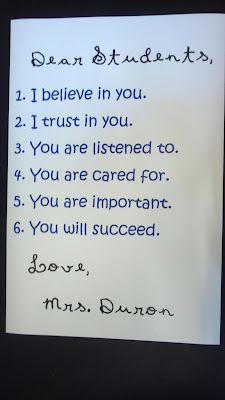 Dear Students,
1. I believe in you.
2. I trust in you.
3. You are listened to.
4. You are cared for.
5. You are important.
6. You will succeed.
Love,
Mrs. Duron